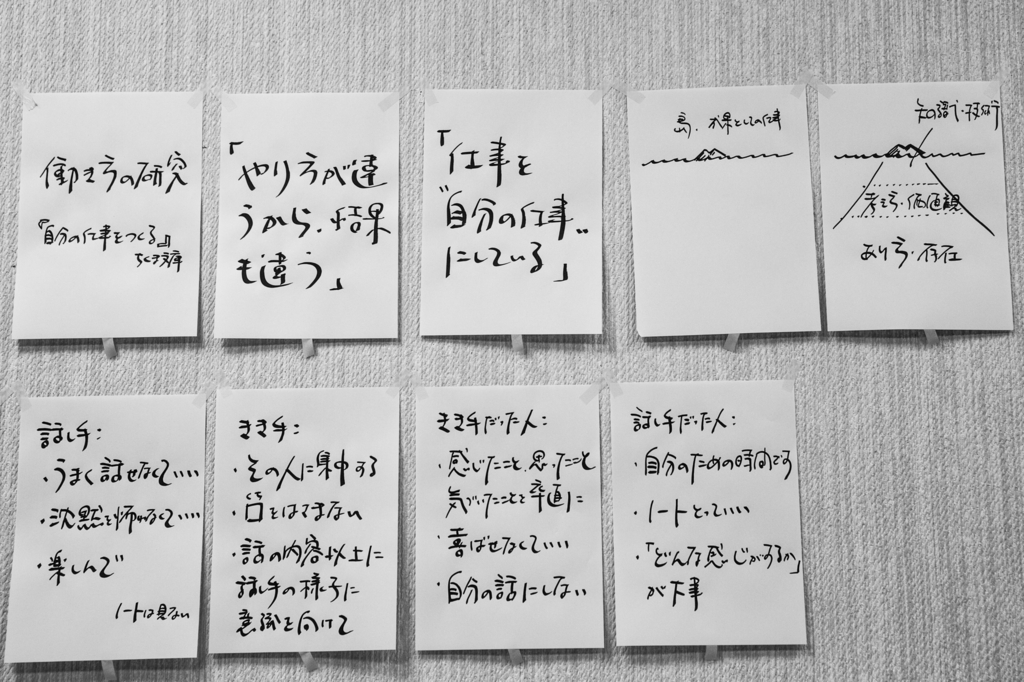 働き方の研究
『自分の仕事をつくる』
ちくま文庫
「やり方が違
うから、結果
も違う」
「仕事を
"自分の仕事"
にしている」
島・成果としての仕事
知識・技術
考え方・価値観
あり方・存在
話し手：
・うまく話せなくていい
・沈黙を怖れなくていい
・楽しんで
ノートは見ない
きき手：
・その人に集中する
・口をはさまない
くち
・話の内容以上に
話し手の様子に
意識を向けて
きき手だった人：
・感じたこと、思ったこと
気づいたことを率直に
・喜ばせなくていい
・自分の話にしない
話し手だった人：
・自分のための時間です
・ノートとっていい
・「どんな感じがするか」
が大事